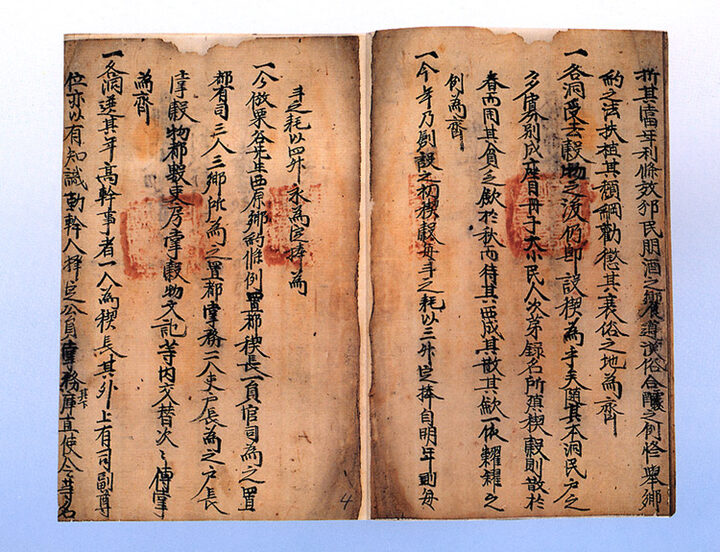 折其富年利條效邠民朋酒之饗遵漢俗合醵之例恪擧鄕
約之法扶植其頹綱勸懲其衰俗之地為齊
一各洞受去穀物之後仍卽設稧為乎矣隨其本洞民戶之
多寡別成座目冊子大小民人次第錄名所殖稧穀則散於
春而周其貧之斂於秋而待其西成其散其斂一依糶糴之
例為齊
一今年乃創設之初稧穀每斗之耗以三升定捧自明年則每
斗之耗以四升永為定捧為
一今倣栗谷先生西原鄕約條例置都稧長一員官司為之置
都有司三人三鄕所為之置都掌務二人吏戶長為之戶長
掌穀物都數吏房掌穀物文記等內交替次〻傳掌
為齊
一各洞選其年高幹事者一人為稧長其外上有司副尊
位亦以有知識勤幹人擇定公員掌務庫直使令等名
4